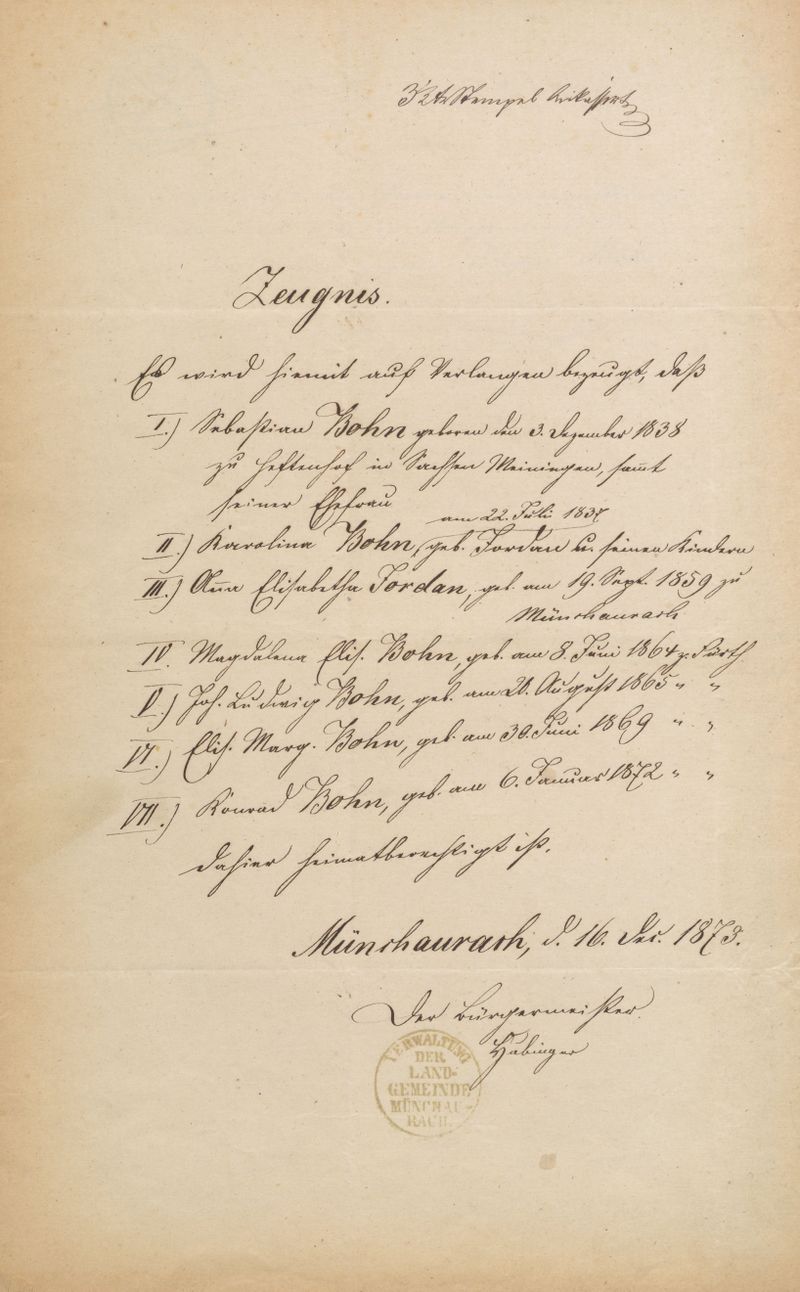 3 Kr Stempel kassirt
Zeugnis.
Es wird hiemit auf Verlangen bezeugt, daß
I.) Sebastian Bohn geboren den 3. Dezember 1838
zu Heftenhof in Sachsen Meiningen, sammt
seiner Ehefrau
am 22. Juli 1837
II.) Karolina Bohn, geb. Jordan u. seinen Kindern
III.) Anna Elisabetha Jordan, geb. am 19. Sept. 1859 zu
Münchaurach
IV. Magdalena Elis. Bohn, geb. am 8. Juni 1864 z. Fürth
V.) Joh. Ludwig Bohn, geb. am 21. August 1865 " "
VI.) Elis. Marg. Bohn, geb. am 30. Juni 1869 " "
VII.) Konrad Bohn, geb. am 6. Januar 1872 " "
dahier heimatberechtigt ist.
Münchaurach, d. 16. Dec. 1873.
Der Bürgermeister.
Hubinger
VERWALTUNG
DER
LAND-
GEMEINDE
MÜNCHAU-
RACH.